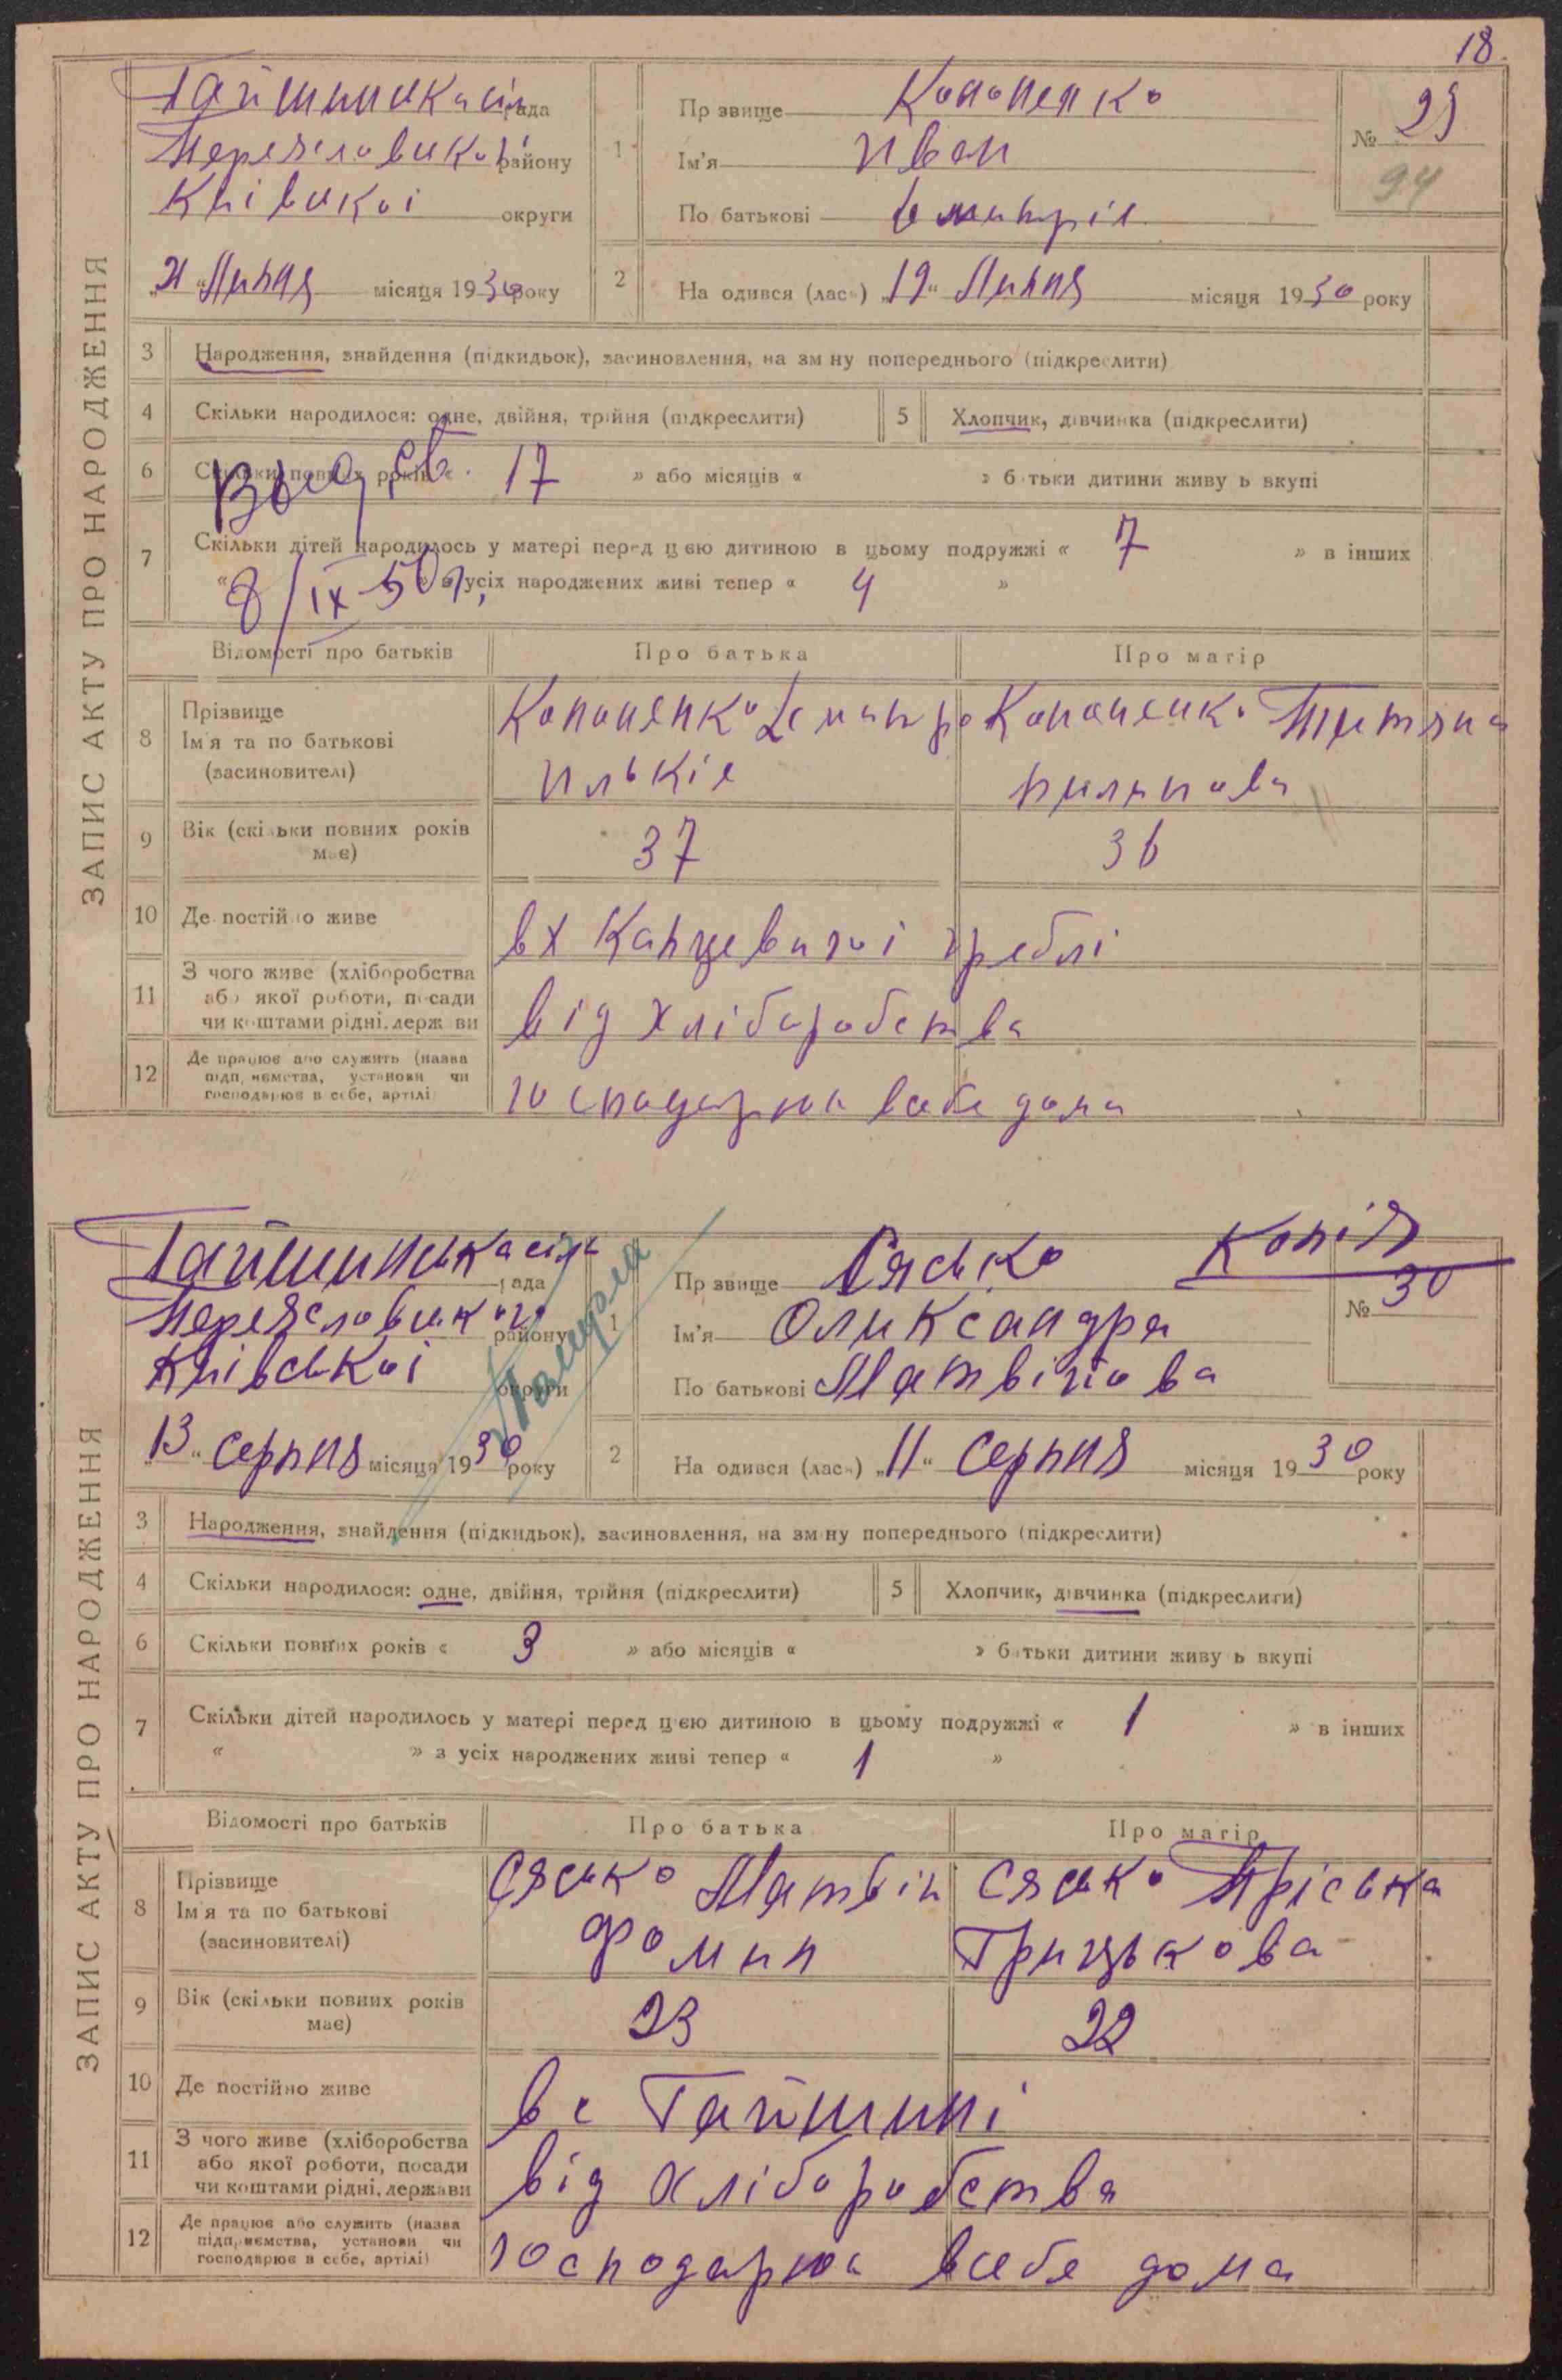 18.
Гайшинська сіль рада
Переяславського району
Київської округи
"21" Липня місяця 1930 року
1 Прізвище Кононенко
Ім'я Иван
По батькові Дмитрів
№ 29
94
2 На одився (лась) "19" Липня місяця 1930 року
ЗАПИС АКТУ ПРО НАРОДЖЕННЯ
3 Народження, знайдення (підкидьок), засиновлення, на зм ну попереднього (підкреслити)
4 Скільки народилося: одне, двійня, трійня (підкреслити)
5 Хлопчик, дівчинка (підкреслити)
6 Скільки повних років « 17 » або місяців « » б тьки дитини живу ь вкупі
Выд. св.
7 Скільки дітей народилось у матері перед цією дитиною в цьому подружжі « 7 » в інших
« » з усіх народжених живі тепер « 4 »
8/IX-50 г.
Відомості про батьків Про батька Про матір
8 Прізвище Ім'я та по батькові (засиновителі)
Кононенко Дмитро Ильків
Кононенко Тетяна Пилипова
9 Вік (скільки повних років має) 37 36
10 Де постійно живе в х Гребля
11 З чого живе (хліборобства або якої роботи, посади чи коштами рідні, держави
від хліборобства
12 Де працює або служить (назва підприємства, установи чи господарює в себе, артілі)
господарює в себе дома
Гайшинська сіль рада
Переяславського району
Київської округи
"13" Серпня місяця 1930 року
1 Прізвище Сясько
Ім'я Олександра
По батькові Матвійова
Копія
№ 30
2 На одився (лась) "11" Серпня місяця 1930 року
ЗАПИС АКТУ ПРО НАРОДЖЕННЯ
3 Народження, знайдення (підкидьок), засиновлення, на зм ну попереднього (підкреслити)
4 Скільки народилося: одне, двійня, трійня (підкреслити)
5 Хлопчик, дівчинка (підкреслити)
6 Скільки повних років « 3 » або місяців « » б тьки дитини живу ь вкупі
7 Скільки дітей народилось у матері перед цією дитиною в цьому подружжі « 1 » в інших
« » з усіх народжених живі тепер « 1 »
Відомості про батьків Про батька Про матір
8 Прізвище Ім'я та по батькові (засиновителі)
Сясько Матвій Фомин
Сясько Пріська Грицькова
9 Вік (скільки повних років має) 23 22
10 Де постійно живе в с Гайшині
11 З чого живе (хліборобства або якої роботи, посади чи коштами рідні, держави
від хліборобства
12 Де працює або служить (назва підприємства, установи чи господарює в себе, артілі)
господарює в себе дома